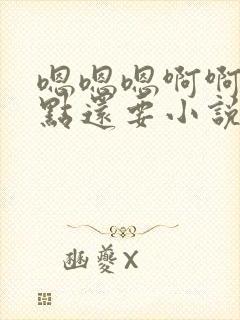 嗯嗯嗯啊啊
點還要小說
幽夔X